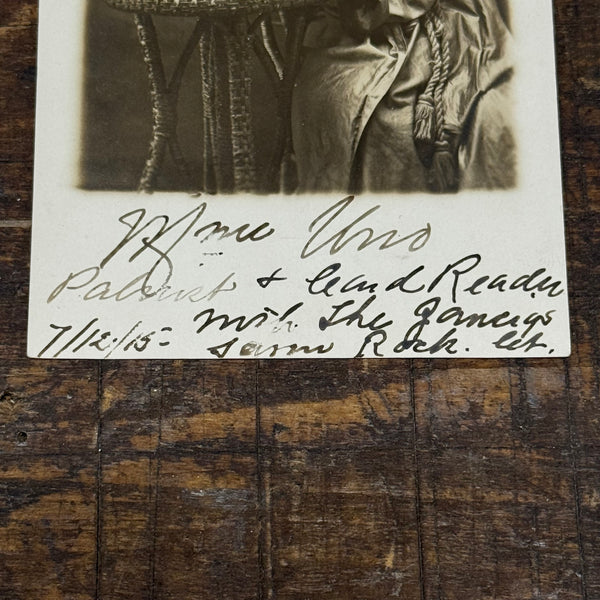 Mme Uno
Palmist + Card Reader
with The Famous
7/12/15 - Rock. Ct.